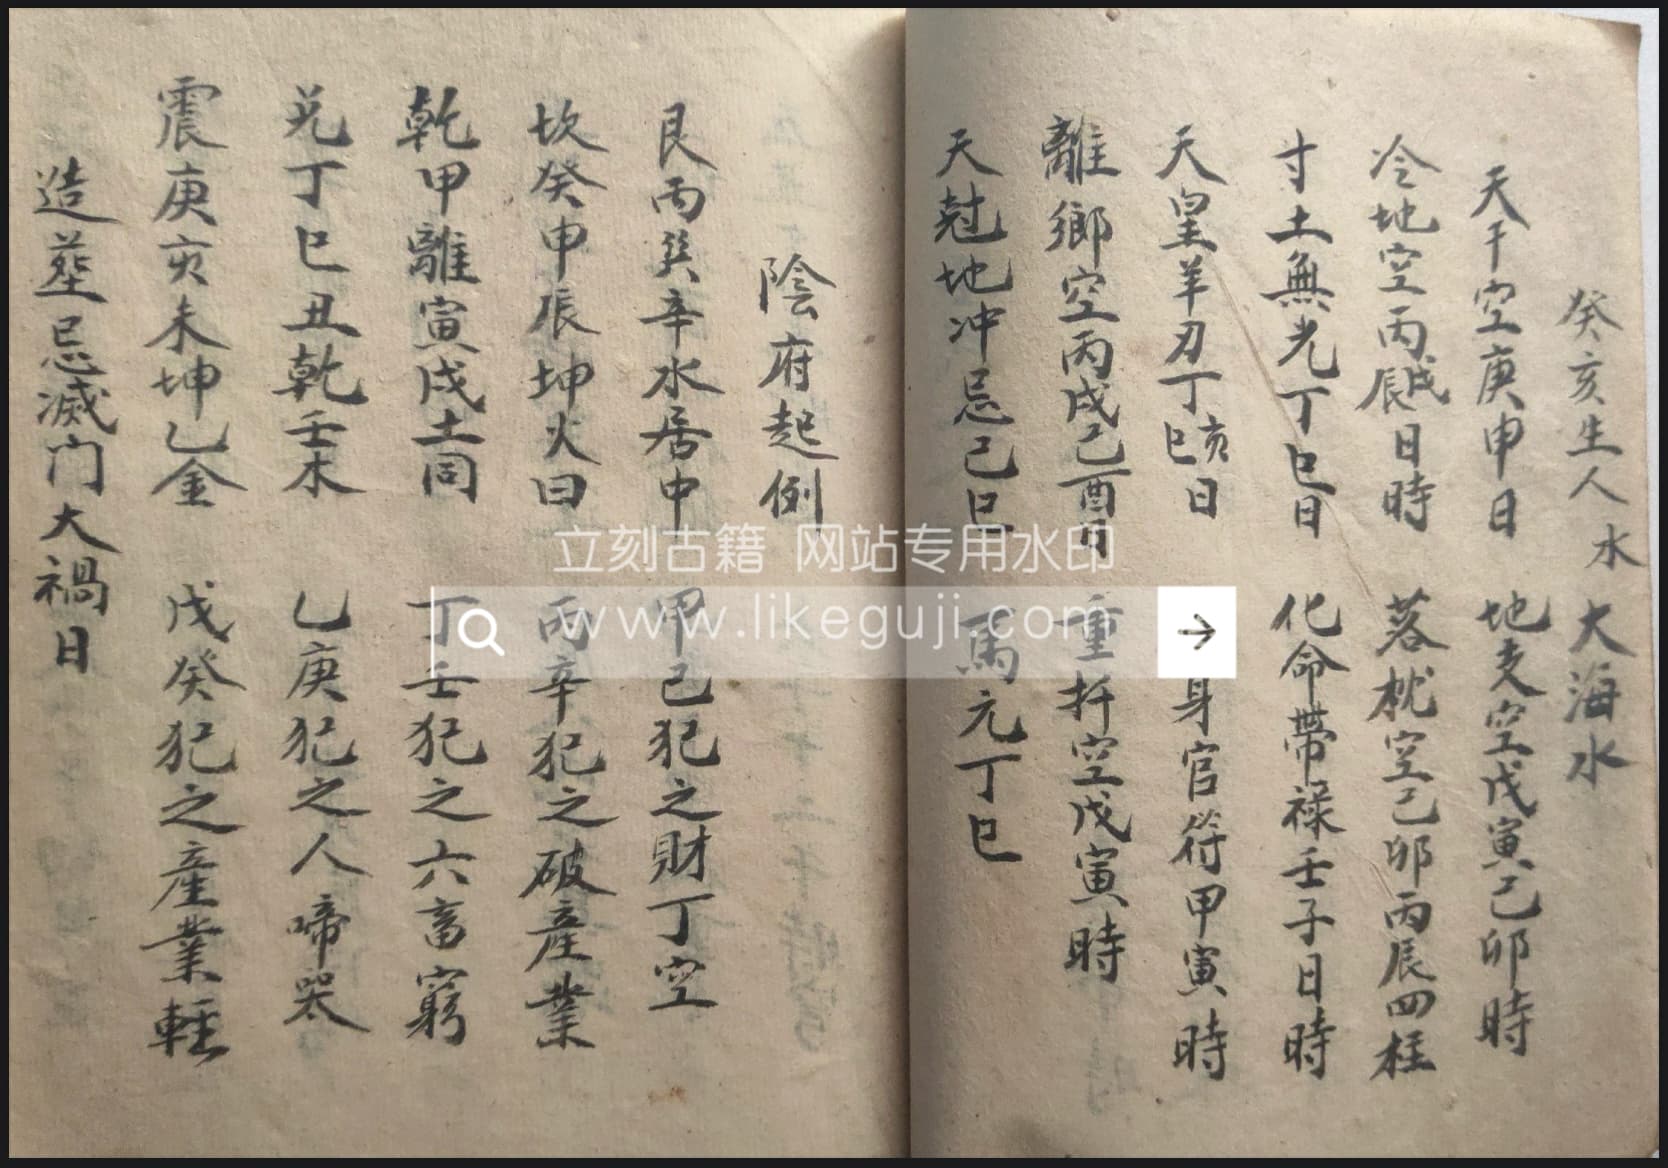 癸亥生人水 大海水
天干空庚申日 地支空戊寅己卯時
冷地空丙戌辰日時 落枕空己卯丙辰四柱
寸土無光丁巳日 化命帶祿壬子日時
天皇羊刃丁亥巳日 身官符甲寅時
離鄉空丙戌己酉日 重扦空戊寅時
天尅地冲忌己巳 馬元丁巳
陰府起例
艮丙巽辛水居中 甲己犯之財丁空
坎癸申辰坤火曰 丙辛犯之破產業
乾甲離寅戌土同 丁壬犯之六畜窮
兑丁巳丑乾壬木 乙庚犯之人啼哭
震庚亥未坤乙金 戊癸犯之產業輕
造塟忌滅门大禍日
立刻古籍 网站专用水印
www.likeguji.com